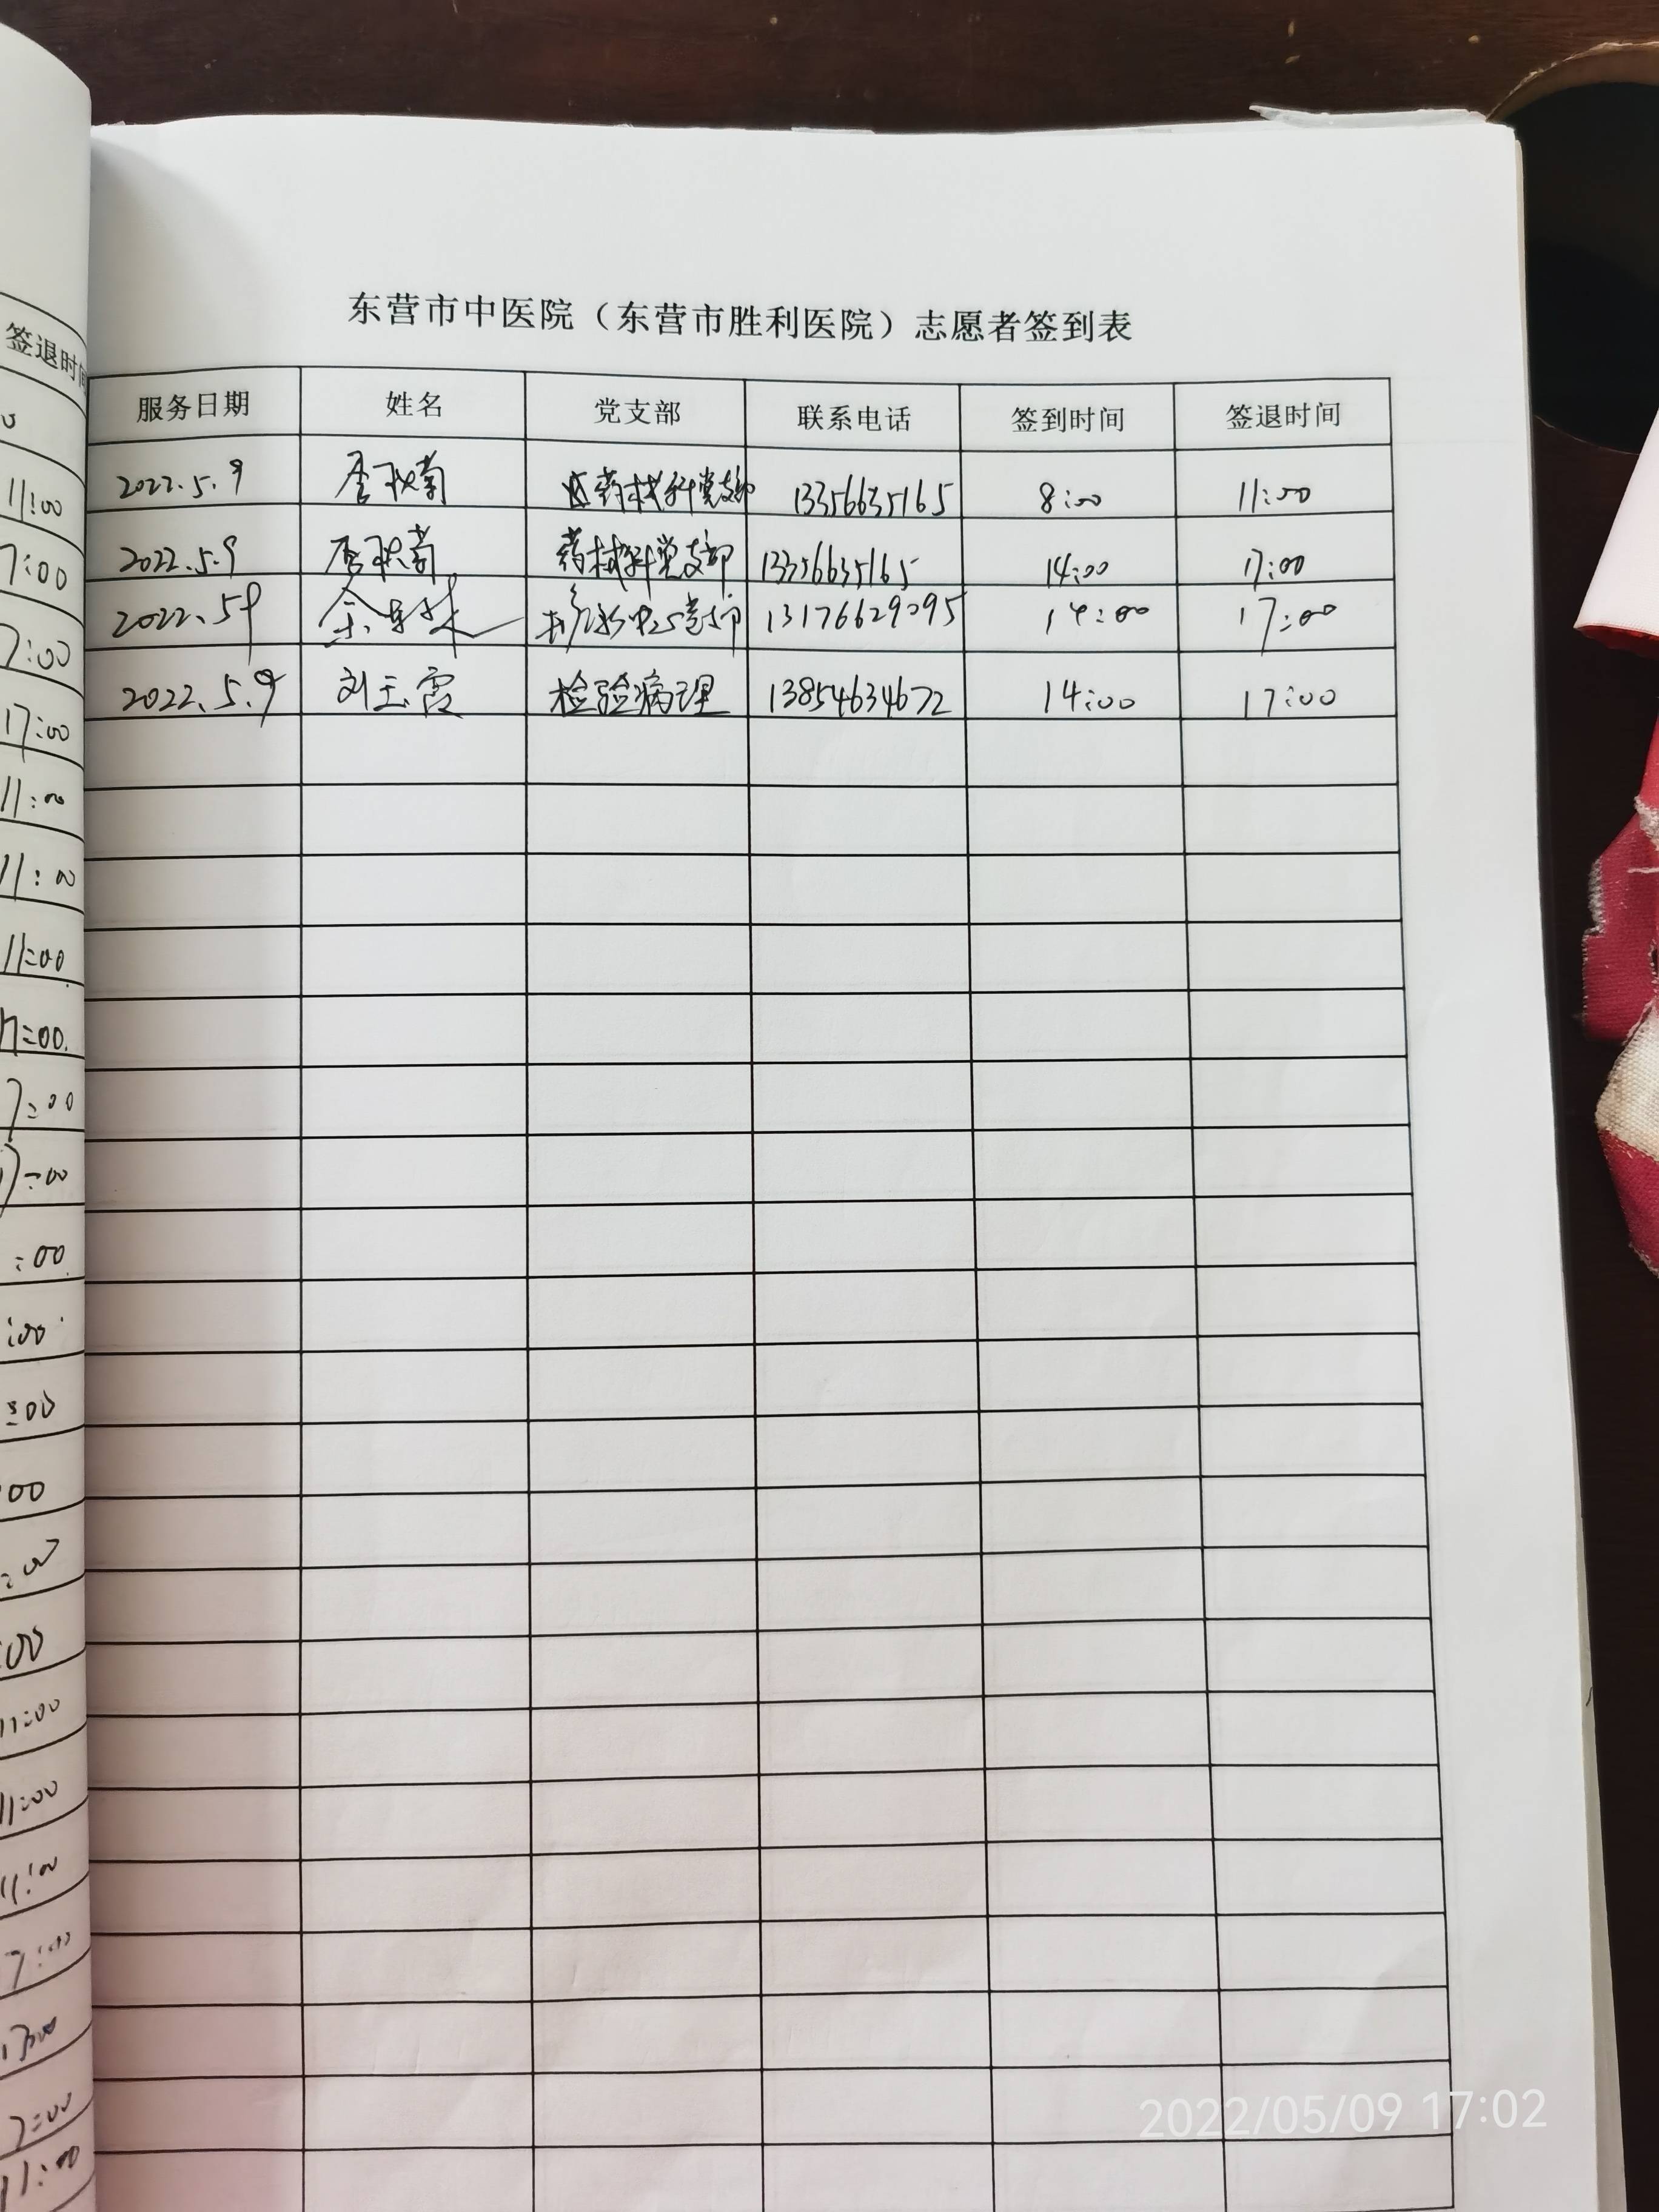 东营市中医院（东营市胜利医院）志愿者签到表
服务日期 姓名 党支部 联系电话 签到时间 签退时间
2022.5.9 药械科党支部 13356635165 8:00 11:00
2022.5.9 药械科党支部 13356635165 14:00 17:00
2022.5.9 13176629095 14:00 17:00
2022.5.9 刘玉霞 检验病理 13854634672 14:00 17:00
签退时间
11:00
7:00
7:00
17:00
11:00
11:00
11:00
17:00
7:00
:00
:00
:00
:00
00
:00
:00
11:00
11:00
11:00
7:00
17:00
7:00
11:00
2022/05/09 17:02